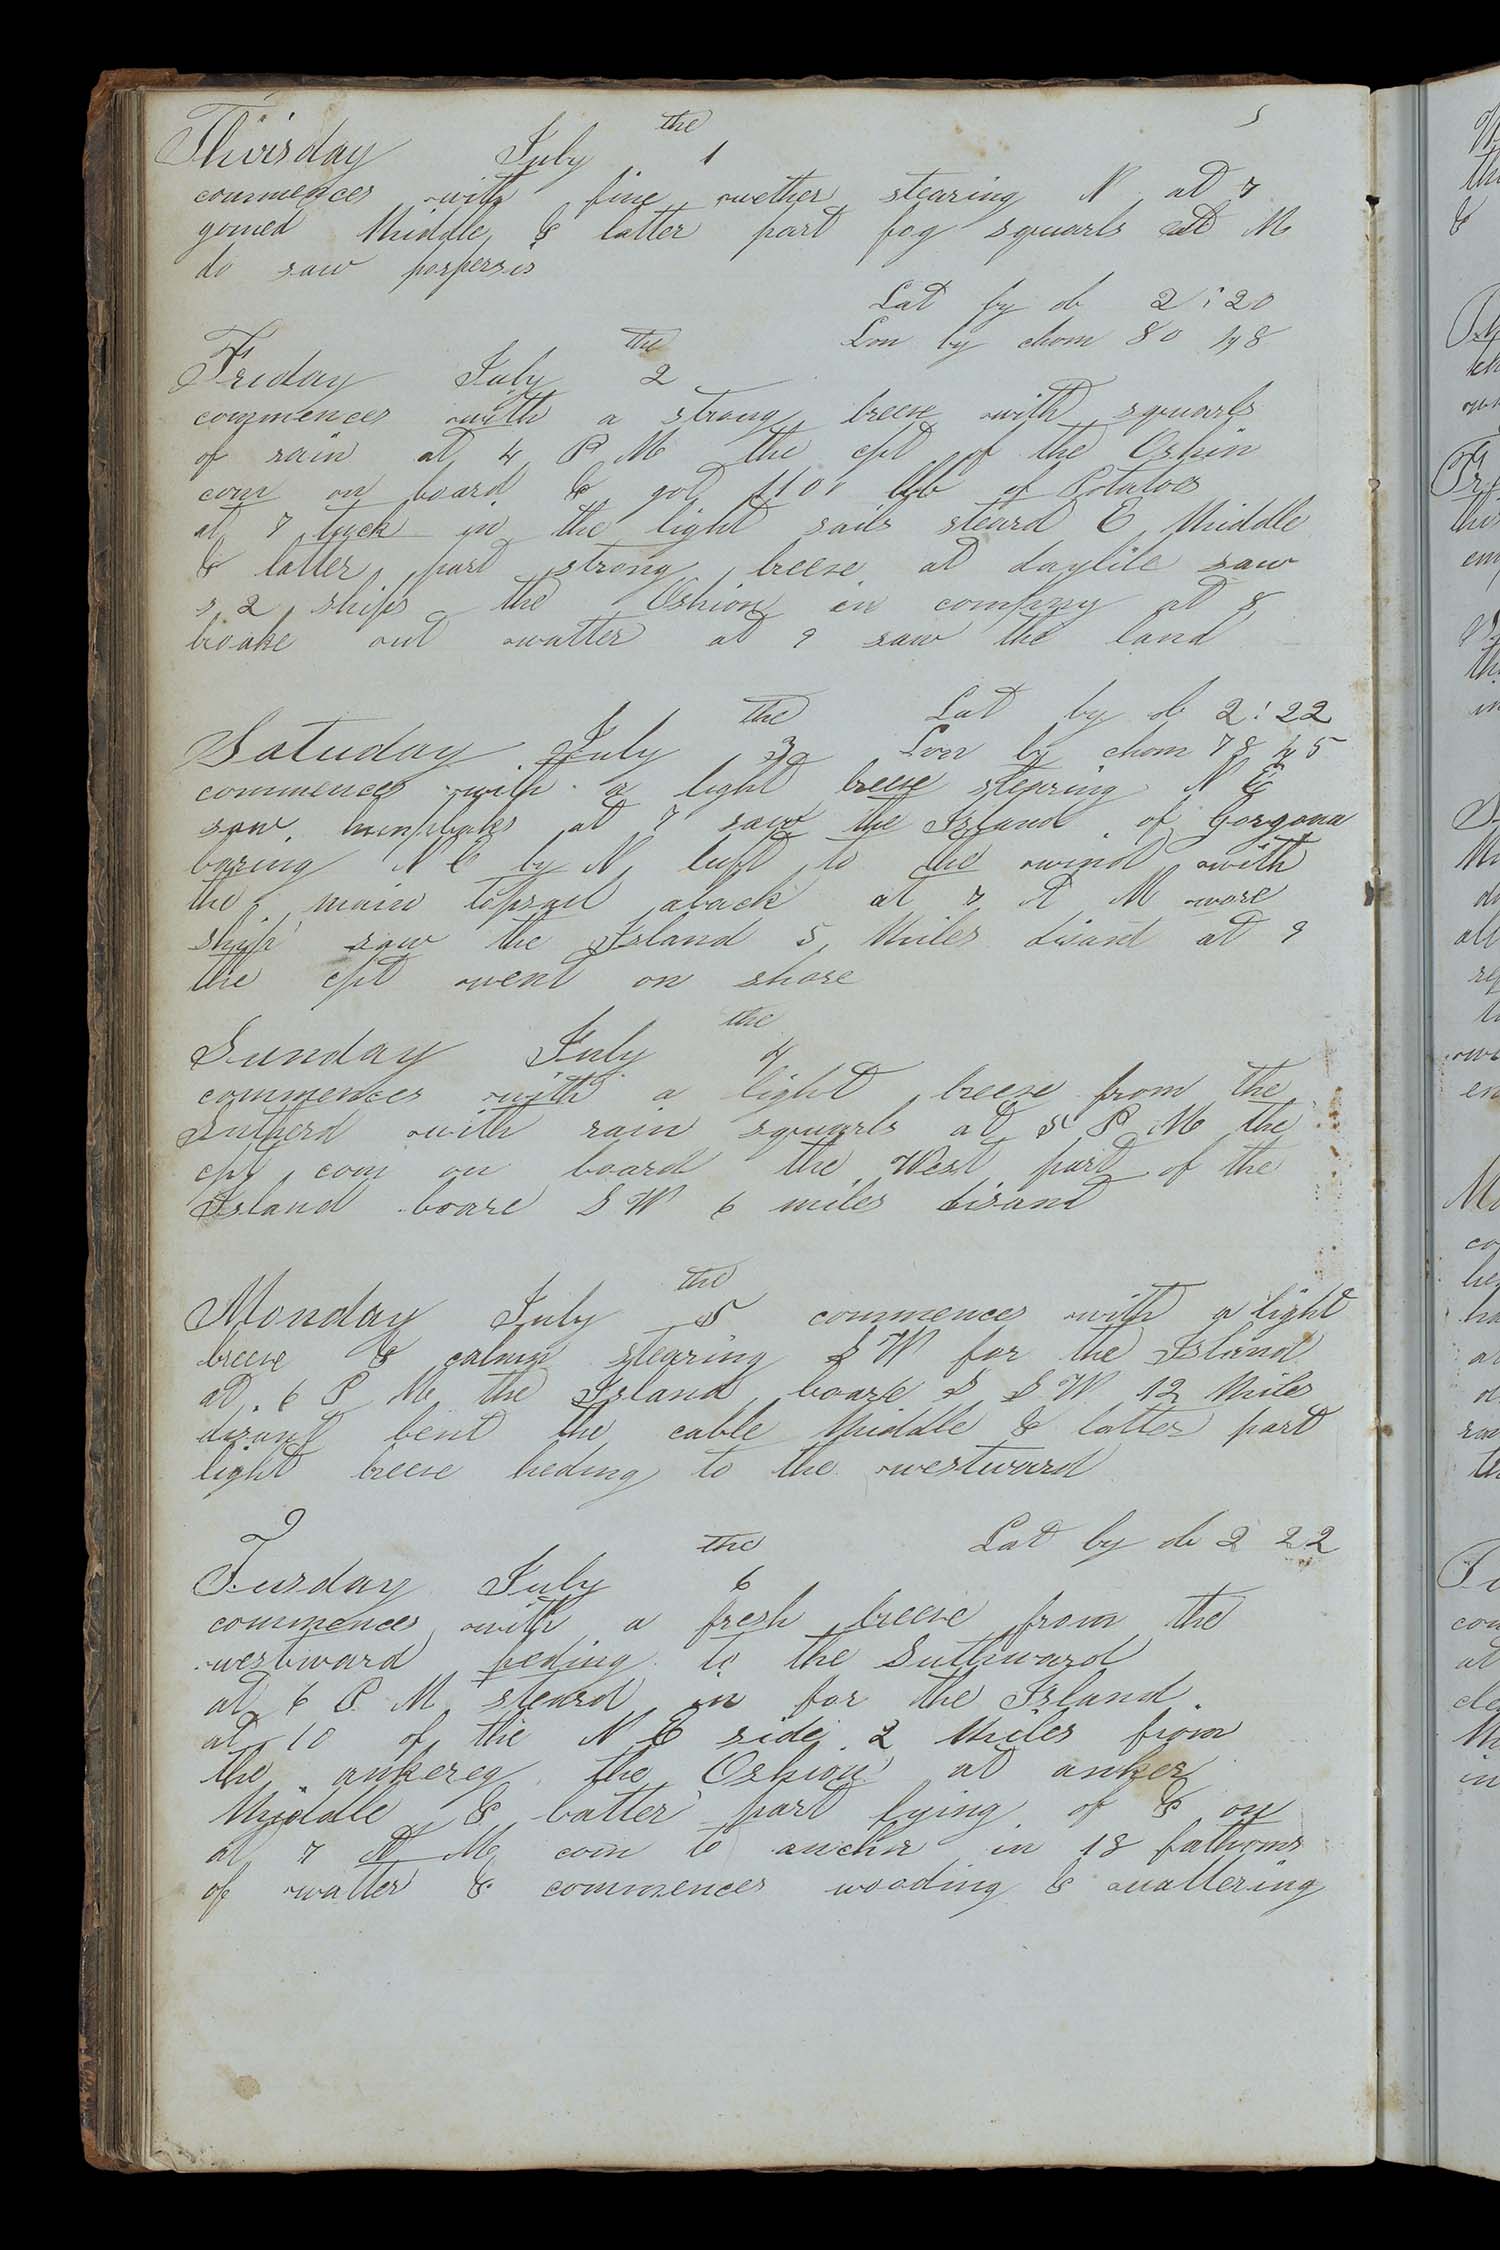 the 5
Thursday July 1
commences with fine wether stearing N at 7
gomed Middle & latter part fog squarls at M
do saw porpersis
Lat by ob 2:20
Lon by chom 80 48
the
Friday July 2
commences with a strong breese with squarls
of rain at 4 P M the cpt of the Oshin
com on board & got 1101 lbb of Potatoes
at 7 tuck in the light sails steard E Middle
& latter part strong breese at daylite saw
s 2 ships the Oshion in company at 8
broake out watter at 9 saw the land
the Lat by ob 2:22
Satuday July 3 Lon by chom 78 45
commences with a light breese stearing N E
saw humpbaks at 7 saw the Island of Gorgona
baring N E by N luft to the wind with
the main topsail aback at 7 A M wore
ship saw the Island 5 Miles disant at 9
the cpt went on shore
the
Sunday July 4
commences with a light breese from the
Sutherd with rain squarls at 5 P M the
cpt com on board the West part of the
Island boare S W 6 miles disant
the
Monday July 5 commences with a light
breese & calmn stearing S W for the Island
at 6 P M the Island boare S S W 12 Miles
disant bent the cable Middle & latter part
light breese heding to the westward
the Lat by ob 2 22
Tusday July 6
commences with a fresh breese from the
westward heding to the Suthward
at 6 P M steard in for the Island
at 10 of the N E side 2 Miles from
the ankereg the Oshion at anker
Middle & latter part lying of & on
at 7 A M com to anchor in 18 fathoms
of watter & commences wooding & wattering